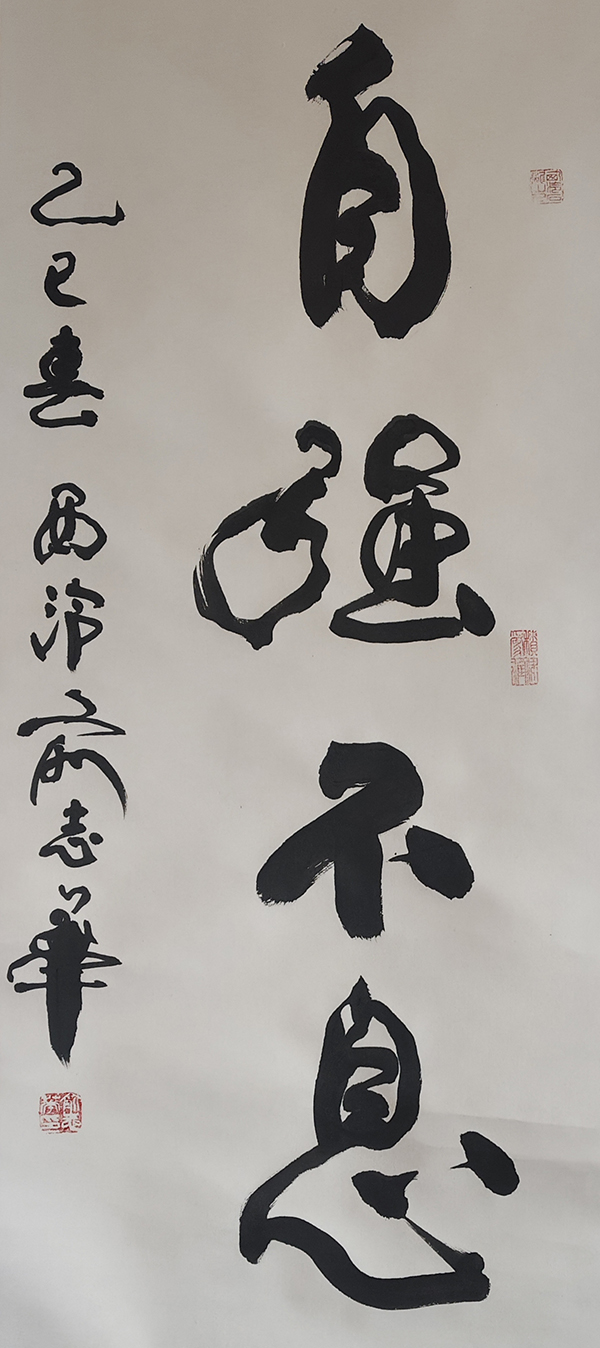 自强不息
乙巳春 西泠 俞志華